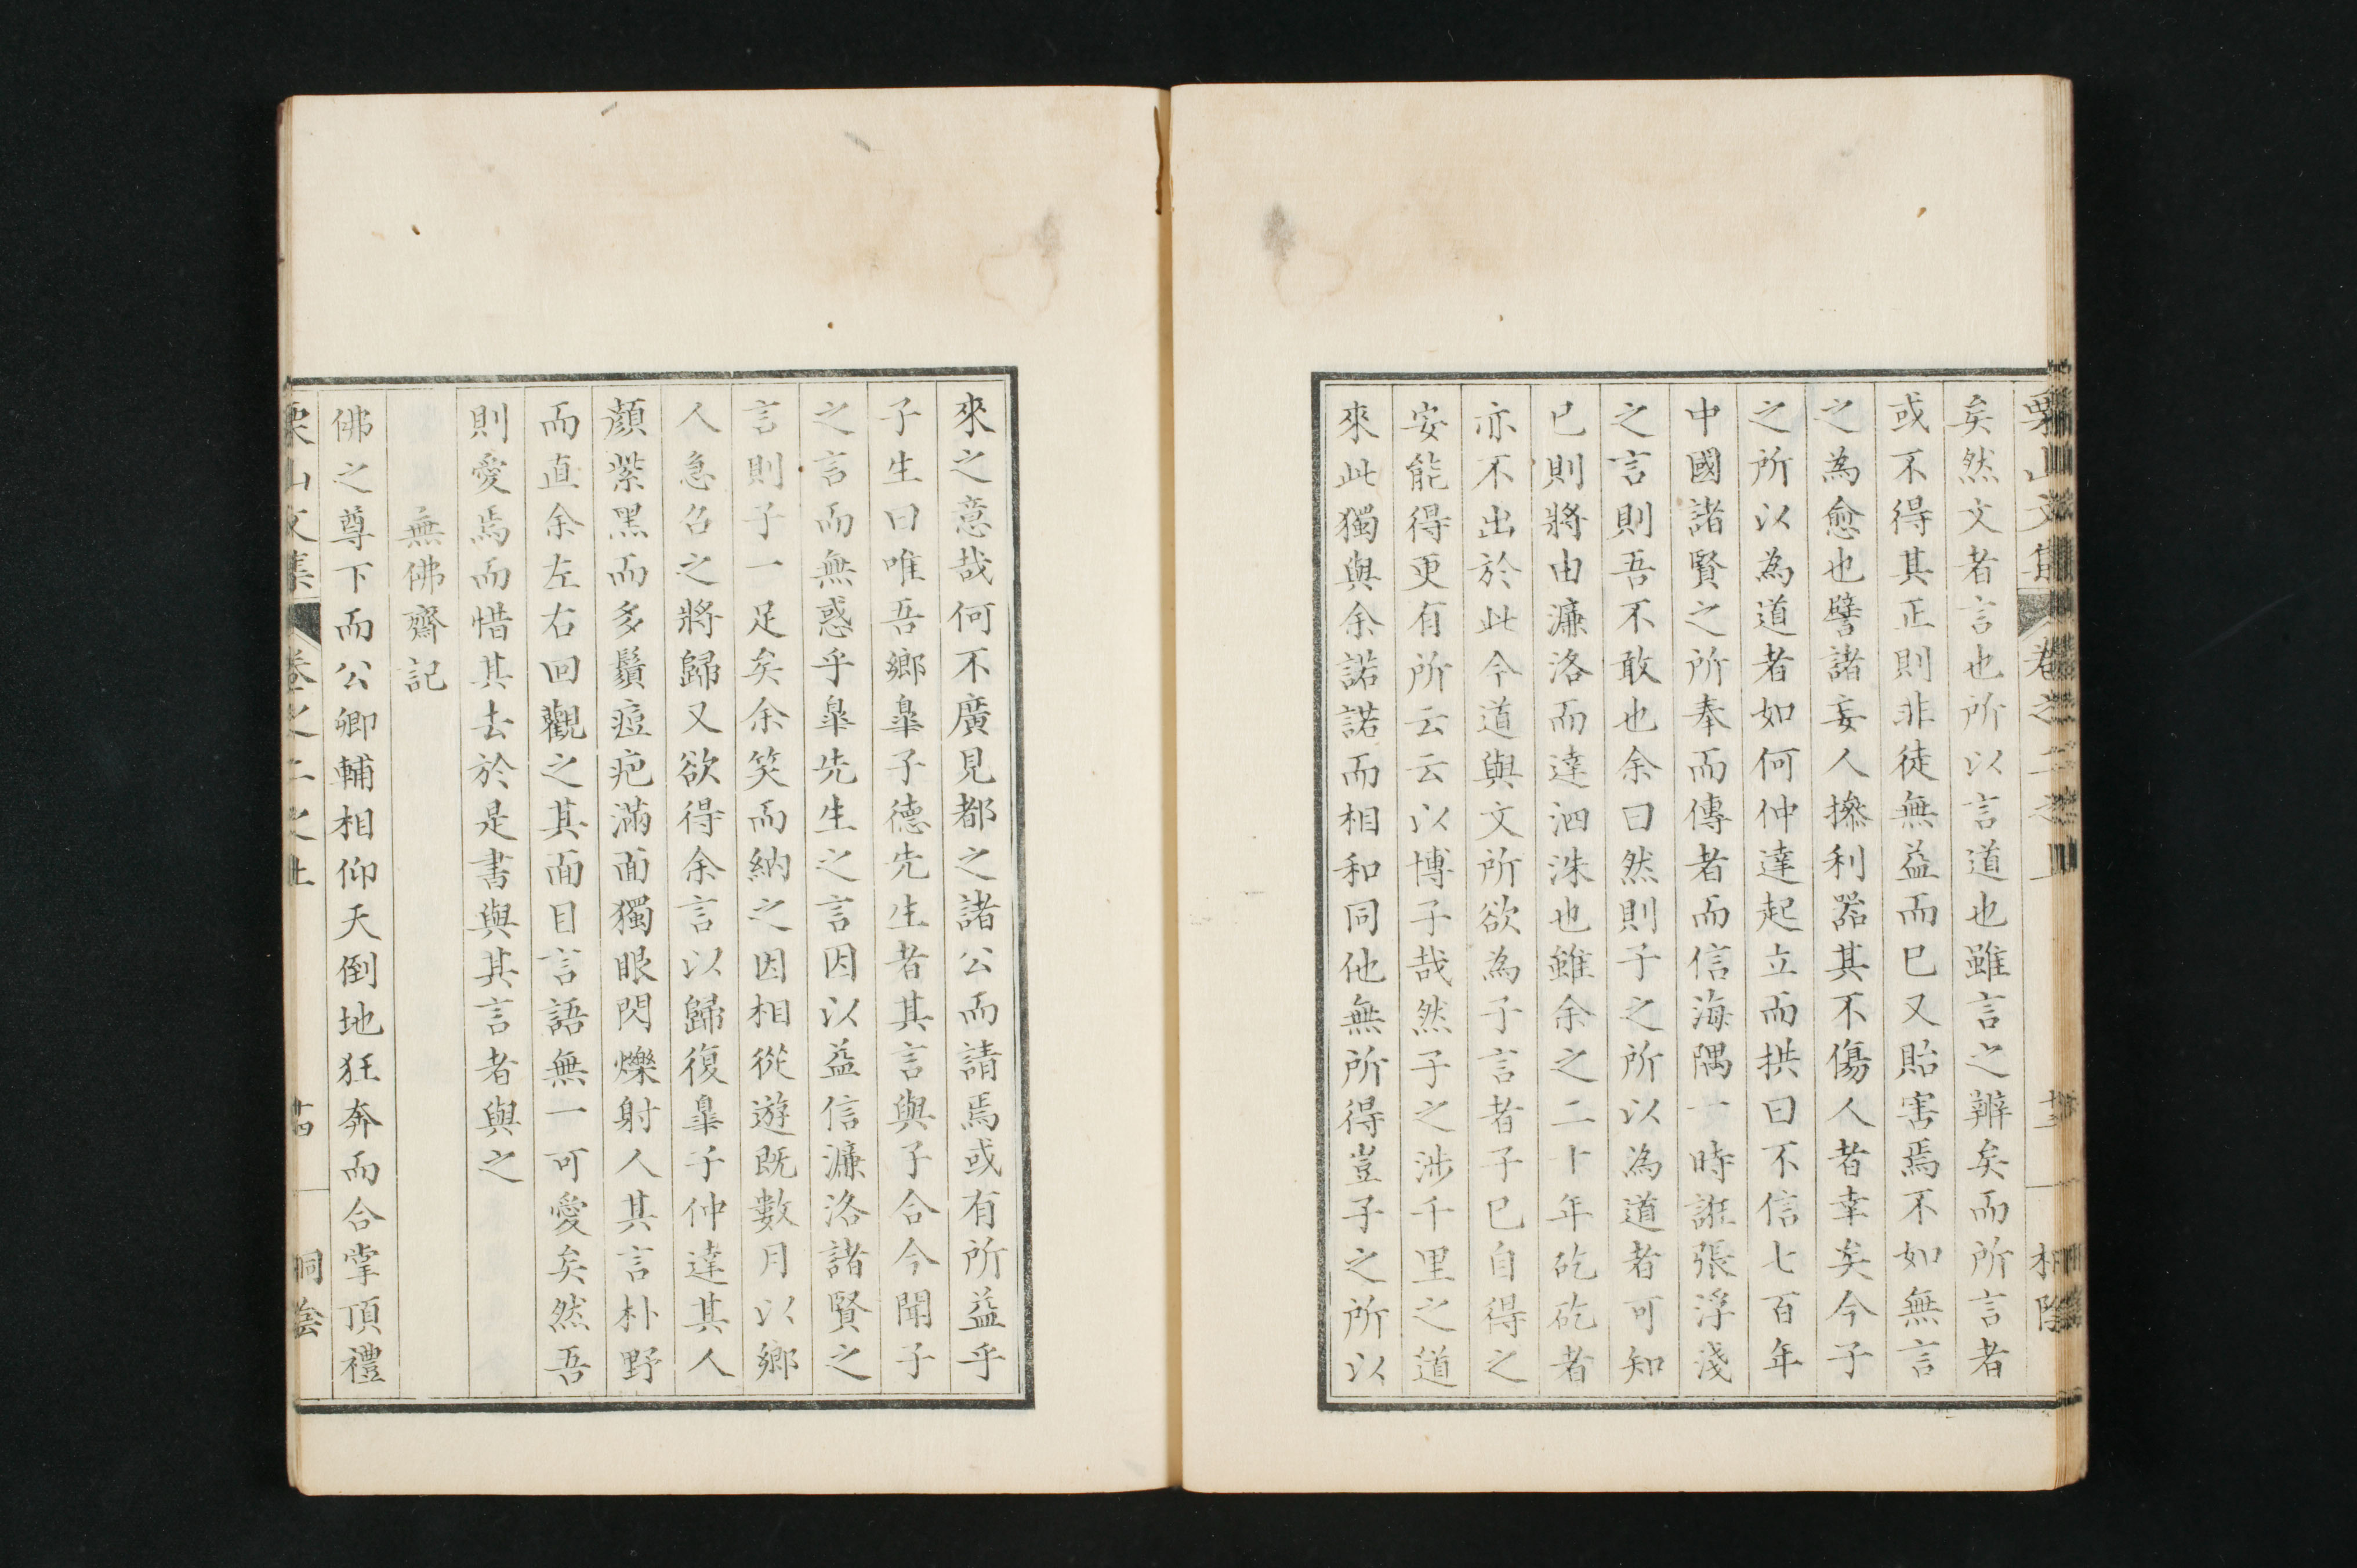 栗山文集 卷之二之上 十三 桐陰
矣然文者言也所以言道也雖言之辨矣而所言者
或不得其正則非徒無益而已又貽害焉不如無言
之為愈也譬諸妄人摻利器其不傷人者幸矣今子
之所以為道者如何仲達起立而拱曰不信七百年
中國諸賢之所奉而傳者而信海隅一時誑張浮淺
之言則吾不敢也余曰然則子之所以為道者可知
已則將由濂洛而達泗洙也雖余之二十年矻矻者
亦不出於此今道與文所欲為子言者子已自得之
安能得更有所云云以博子哉然子之涉千里之道
來此獨與余諾諾而相和同他無所得豈子之所以
來之意哉何不廣見都之諸公而請焉或有所益乎
子生曰唯吾鄉臯子德先生者其言與子合今聞子
之言而無惑乎臯先生之言因以益信濂洛諸賢之
言則子一足矣余笑而納之因相從遊既數月以鄉
人急召之將歸又欲得余言以歸復臯子仲達其人
顏紫黑而多鬚痘疤滿面獨眼閃爍射人其言朴野
而直余左右回觀之其面目言語無一可愛矣然吾
則愛焉而惜其去於是書與其言者與之
無佛齋記
佛之尊下而公卿輔相仰天倒地狂奔而合掌頂禮
栗山文集 卷之二之上 十四 桐陰